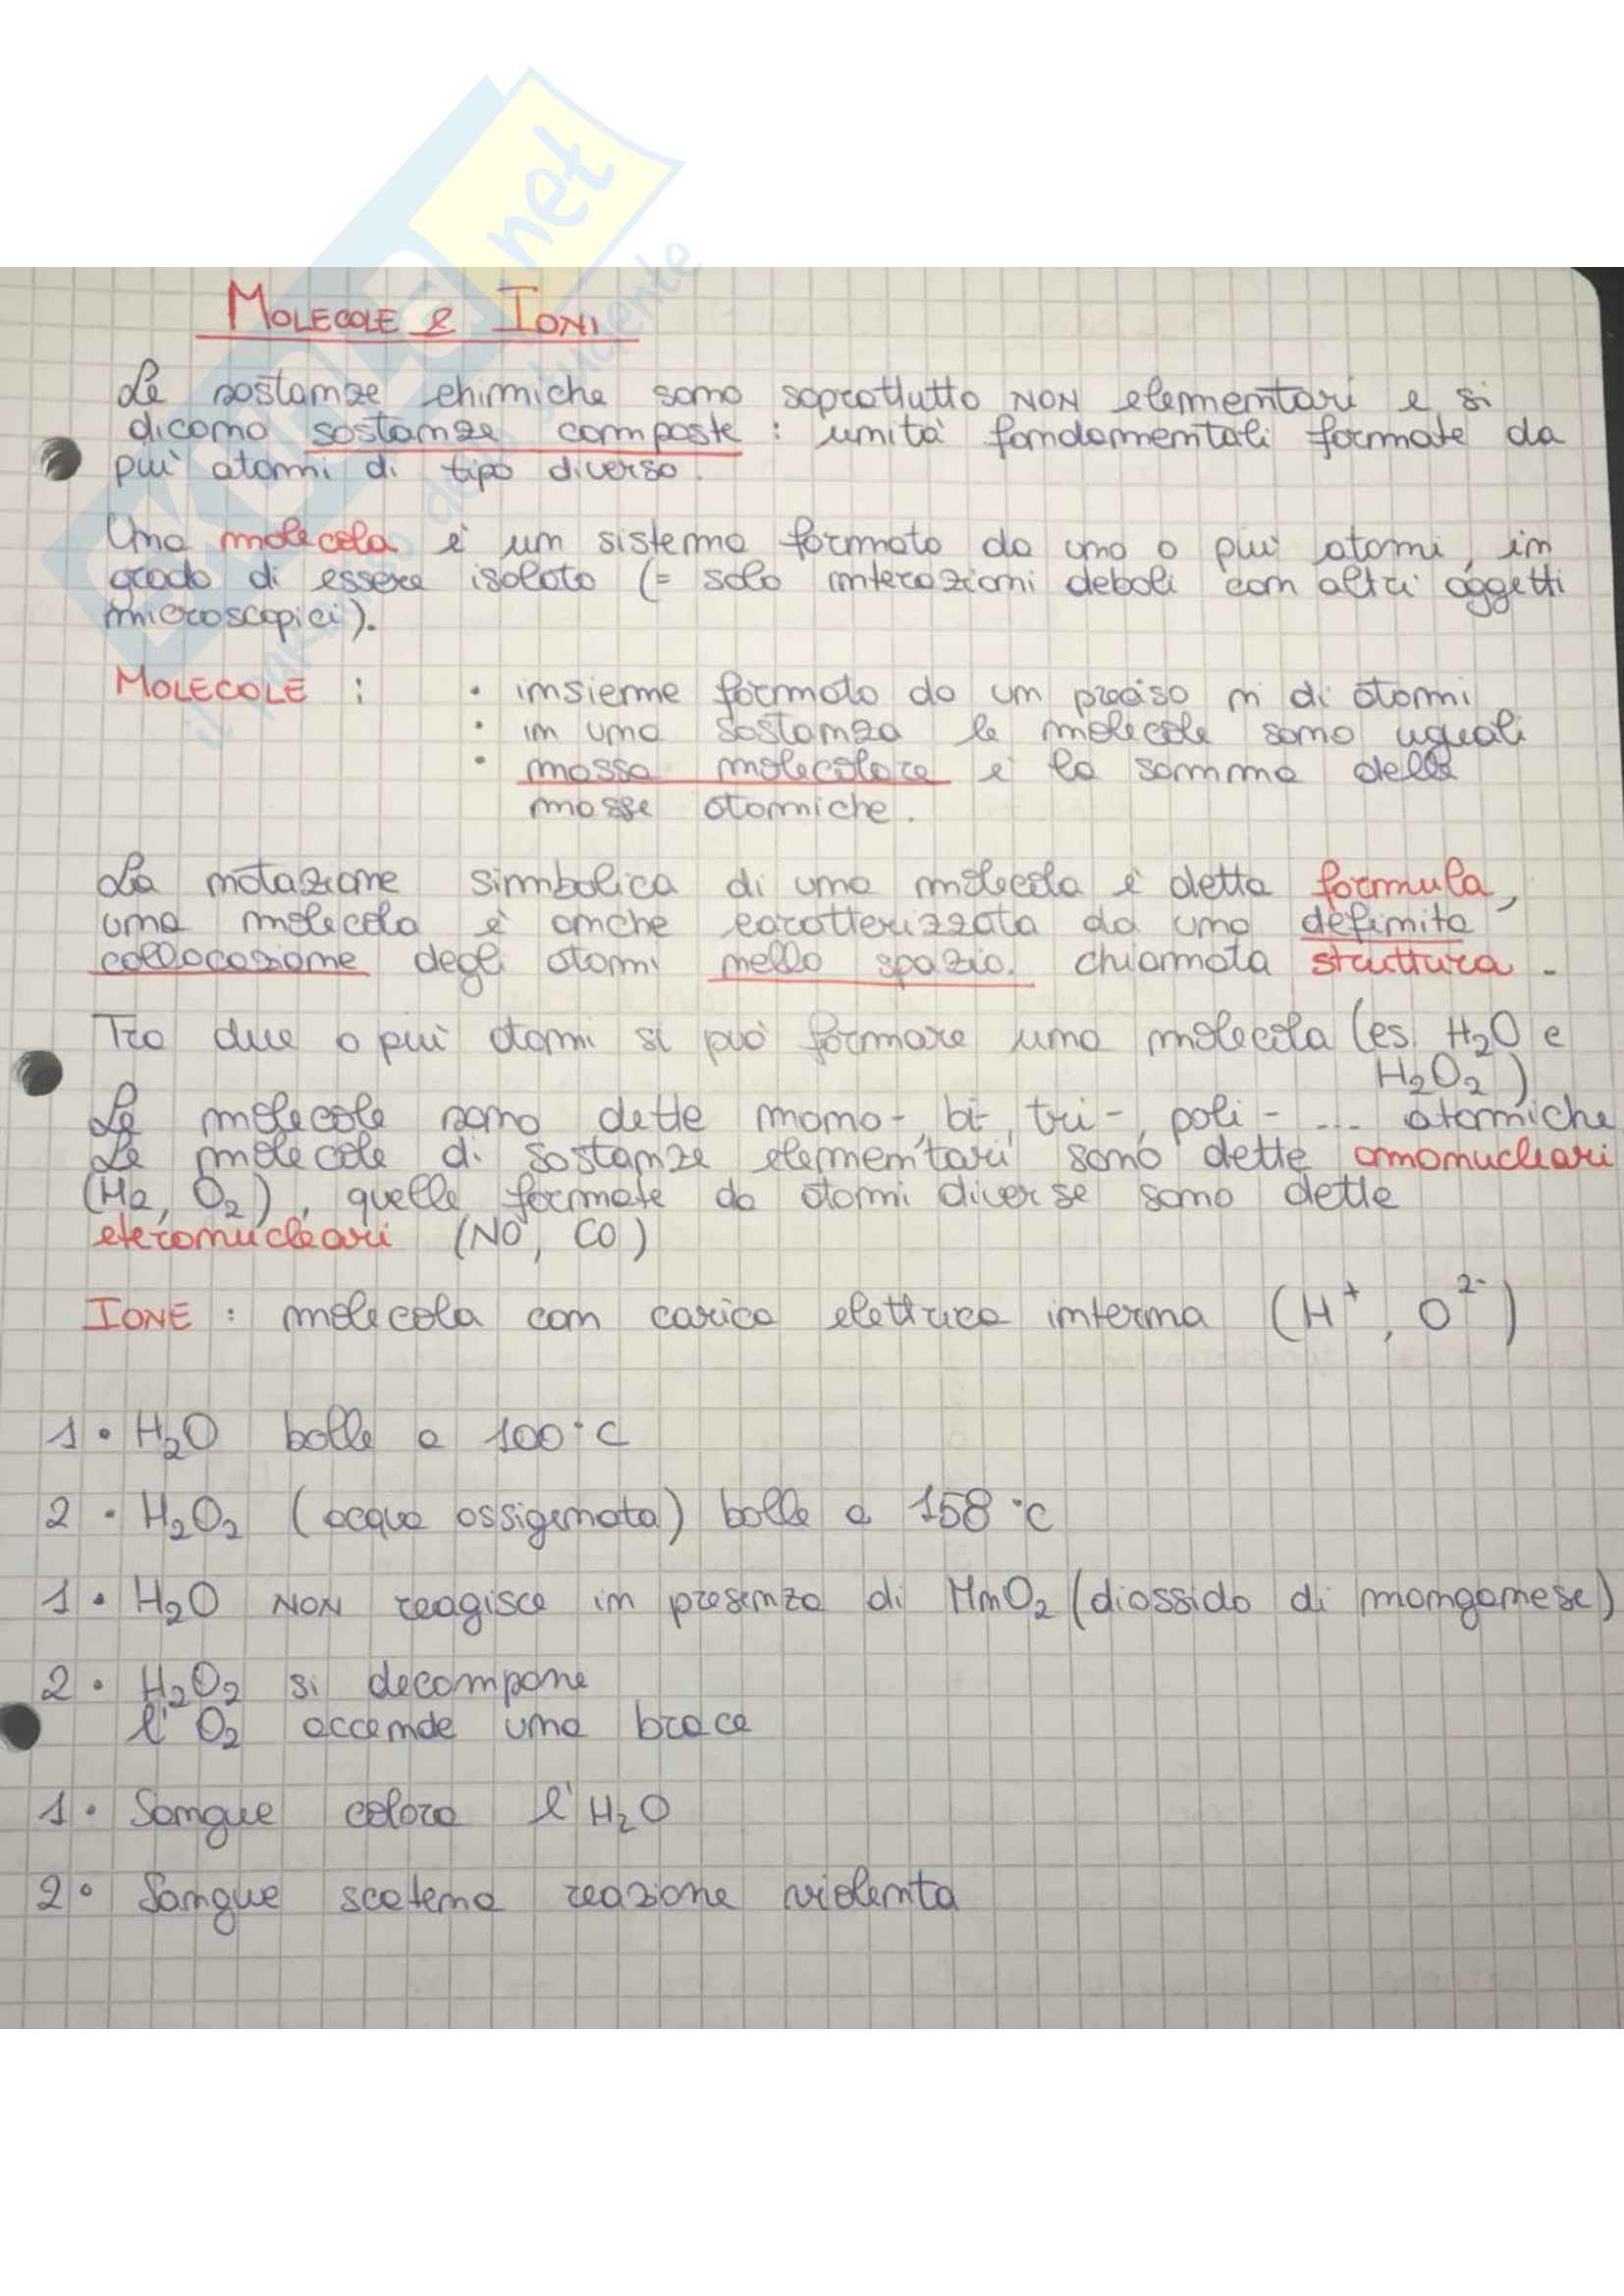 MOLECOLE & IONI
Le sostanze chimiche sono soprattutto NON elementari e si
dicono sostanze composte : unità fondamentali formate da
più atomi di tipo diverso.
Una molecola è un sistema formato da uno o più atomi, in
grado di essere isolato (= solo interazioni deboli con altri oggetti
microscopici).
MOLECOLE : • insieme formato da un preciso n di atomi
• in una sostanza le molecole sono uguali
• massa molecolare è la somma delle
masse atomiche.
La notazione simbolica di una molecola è detta formula,
una molecola è anche caratterizzata da una definita
collocazione degli atomi nello spazio, chiamata struttura.
Tra due o più atomi si può formare una molecola (es. H₂O e
H₂O₂)
Le molecole sono dette mono-, bi-, tri-, poli- ... atomiche
Le molecole di sostanze elementari sono dette omonucleari
(H₂, O₂), quelle formate da atomi diverse sono dette
eteronucleari (NO, CO)
IONE : molecola con carica elettrica interna (H⁺, O²⁻)
1 • H₂O bolle a 100°C
2 • H₂O₂ (acqua ossigenata) bolle a 158 °C
1 • H₂O NON reagisce in presenza di MnO₂ (diossido di manganese)
2 • H₂O₂ si decompone
l'O₂ accende una brace
1 • Sangue colora l'H₂O
2 • Sangue scatena reazione violenta
net
il paradiso dello studente